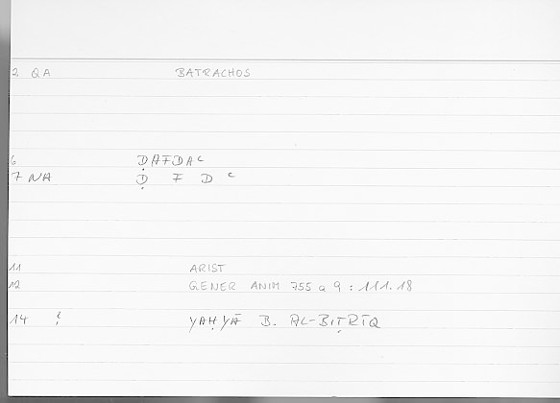 2 QA BATRACHOS
6 ḌAFDAᶜ
7 NA Ḍ F D ᶜ
11 ARIST
12 GENER ANIM 755 a 9 : 111.18
14 YAḤYĀ B. AL-BIṬRĪQ